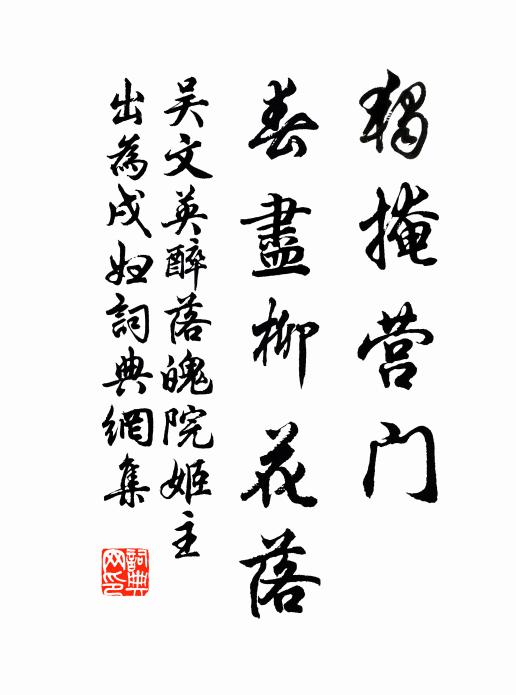 獨掩营门
春盡柳花落
吴文英醉落魄院姬主
出為戍妇詞典網集
詞典网印